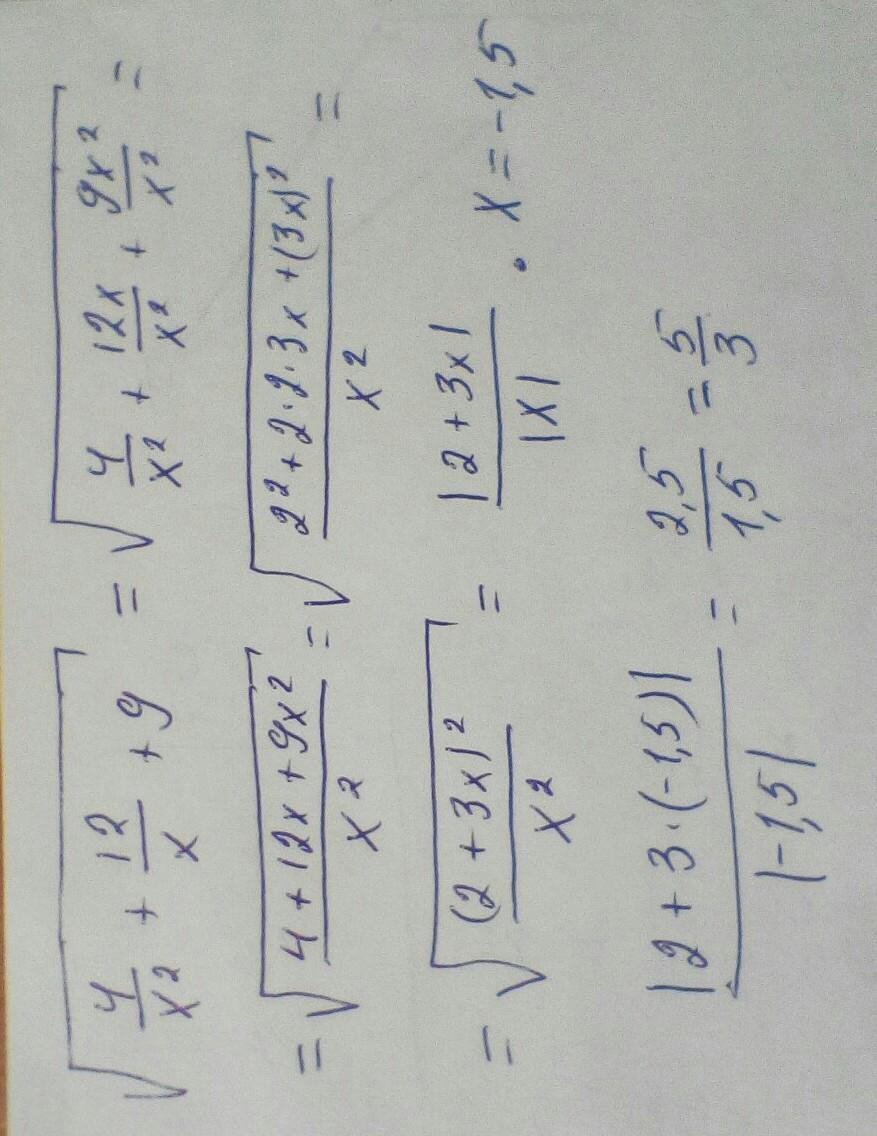 √(4/x² + 12/x + 9) = √(4/x² + 12x/x² + 9x²/x²) =
= √((4 + 12x + 9x²)/x²) = √((2² + 2·2·3x + (3x)²)/x²) =
= √((2 + 3x)²/x²) = |2 + 3x|/|x| . x = -1,5
|2 + 3·(-1,5)|/|-1,5| = 2,5/1,5 = 5/3